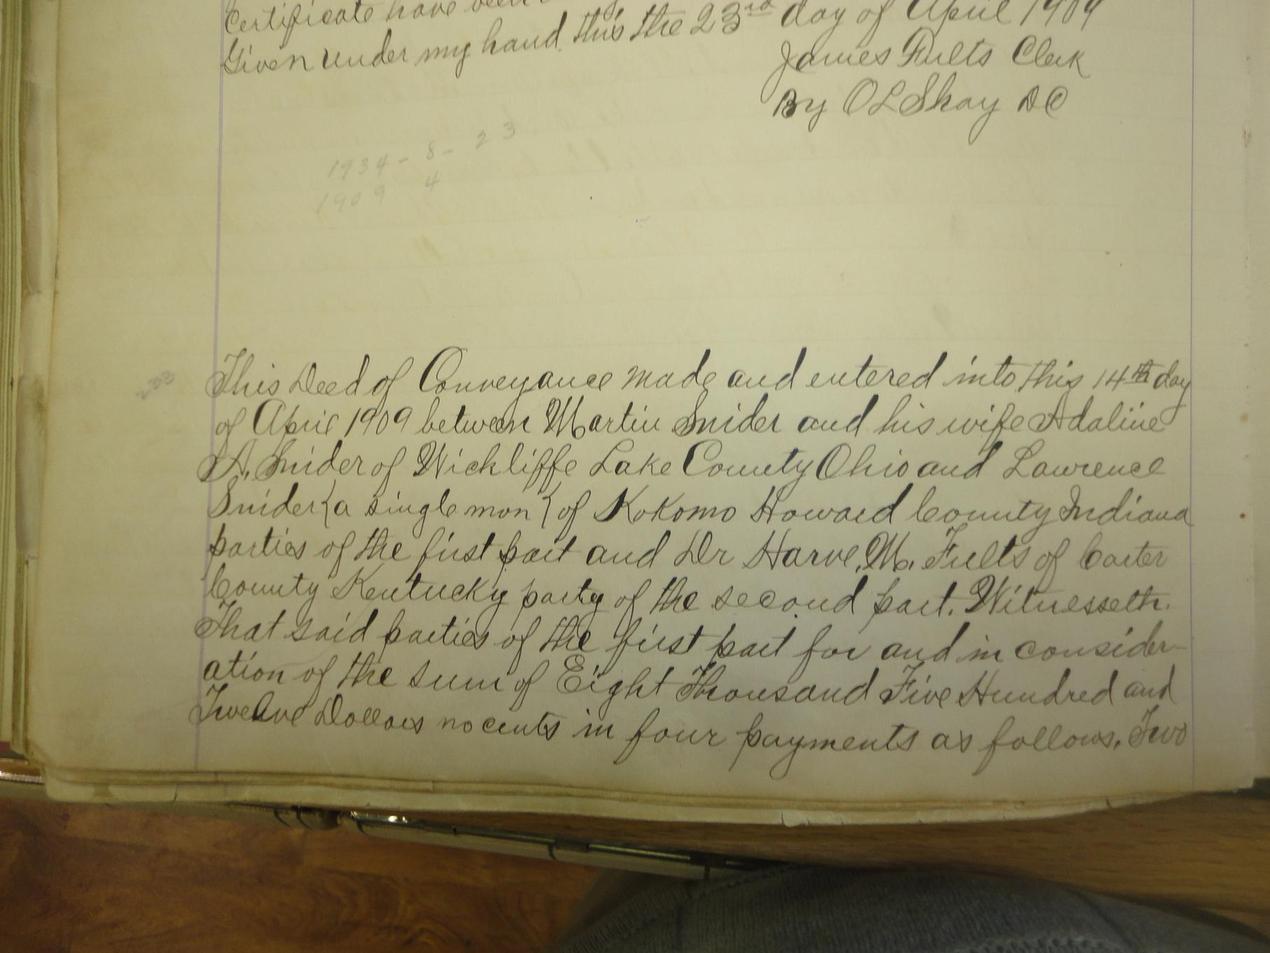 Certificate have been
Given under my hand this the 23rd day of April 1909
James Fults Clerk
By O L Shay DC
1934 - 8 - 23
1909 4
This Deed of Conveyance made and entered into this 14th day
of April 1909 between Martin Snider and his wife Adaline
A. Snider of Wickliffe Lake County Ohio and Lawrence
Snider {a single man} of Kokomo Howard County Indiana
parties of the first part and Dr Harve. M. Fults of Carter
County Kentucky party of the second part. Witnesseth.
That said parties of the first part for and in consider-
ation of the sum of Eight Thousand Five Hundred and
Twelve Dollars no cents in four payments as follows, Two